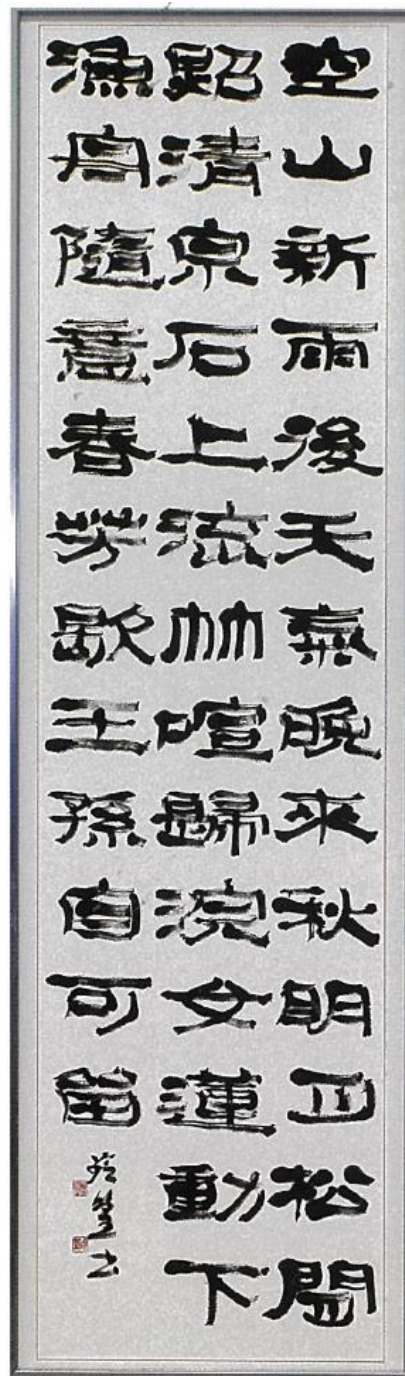 空山新雨後天氣晚來秋明月松間
照清泉石上流竹喧歸浣女蓮動下
漁舟隨意春芳歇王孫自可留
書